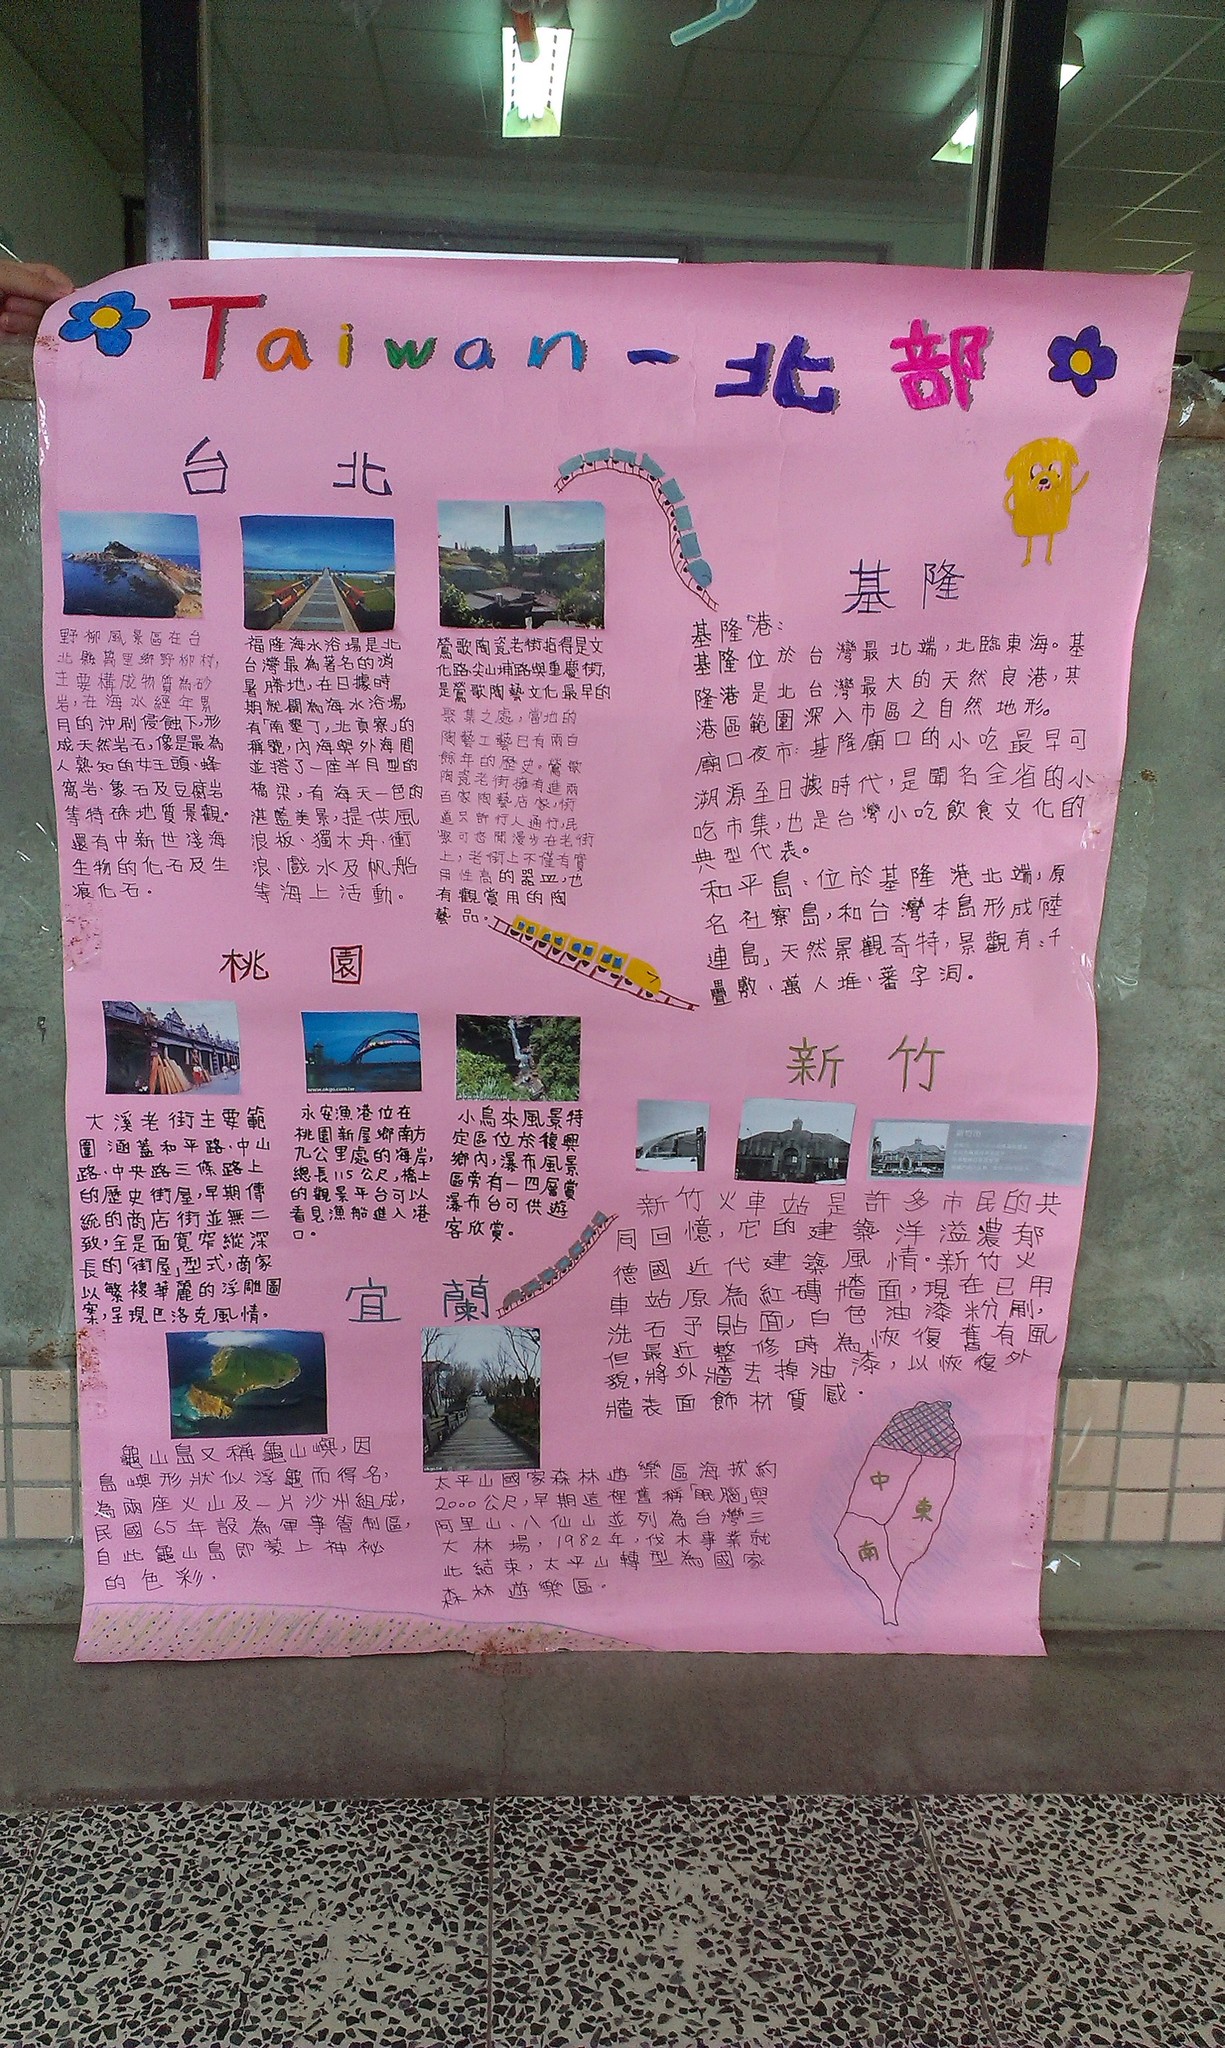 Taiwan-北部
台北
野柳風景區在台
北縣萬里鄉野柳村,
主要構成物質為砂
岩,在海水經年累
月的沖刷侵蝕下,形
成天然岩石,像是最為
人熟知的女王頭、蜂
窩岩、象石及豆腐岩
等特殊地質景觀。
還有中新世淺海
生物的化石及生
痕化石。
福隆海水浴場是北
台灣最為著名的消
暑勝地,在日據時
期就闢為海水浴場,
有「南墾丁,北貢寮」的
稱號,內海與外海間
並搭了一座半月型的
橋梁,有海天一色的
湛藍美景,提供風
浪板、獨木舟、衝
浪、戲水及帆船
等海上活動。
鶯歌陶瓷老街指得是文
化路、尖山埔路與重慶街,
是鶯歌陶藝文化最早的
聚集之處,當地的
陶藝工藝已有兩百
餘年的歷史。鶯歌
陶瓷老街擁有進兩
百家陶藝店家,街
道只許行人通行,民
眾可悠閒漫步在老街
上,老街上不僅有實
用性高的器皿,也
有觀賞用的陶
藝品。
基隆
基隆港:
基隆位於台灣最北端,北臨東海。基
隆港是北台灣最大的天然良港,其
港區範圍深入市區之自然地形。
廟口夜市:基隆廟口的小吃最早可
溯源至日據時代,是聞名全省的小
吃市集,也是台灣小吃飲食文化的
典型代表。
和平島:位於基隆港北端,原
名社寮島,和台灣本島形成陸
連島」天然景觀奇特,景觀有:千
疊敷、萬人堆、蕃字洞。
桃園
大溪老街主要範
圍涵蓋和平路、中山
路、中央路三條路上
的歷史街屋,早期傳
統的商店街並無二
致,全是面寬窄縱深
長的「街屋」型式,商家
以繁複華麗的浮雕圖
案,呈現巴洛克風情。
www.okgo.com.tw
永安漁港位在
桃園新屋鄉南方
九公里處的海岸,
總長115公尺,橋上
的觀景平台可以
看見漁船進入港
口。
小烏來風景特
定區位於復興
鄉內,瀑布風景
區旁有一四層賞
瀑布台可供遊
客欣賞。
新竹
新竹火車站是許多市民的共
同回憶,它的建築洋溢濃郁
德國近代建築風情。新竹火
車站原為紅磚牆面,現在已用
洗石子貼面,白色油漆粉刷,
但最近整修時為恢復舊有風
貌,將外牆去掉油漆,以恢復外
牆表面飾材質感。
宜蘭
龜山島又稱龜山嶼,因
島嶼形狀似浮龜而得名,
為兩座火山及一片沙州組成,
民國65年設為軍事管制區,
自此龜山島即蒙上神秘
的色彩。
太平山國家森林遊樂區海拔約
2000公尺,早期這裡舊稱「眠腦」與
阿里山、八仙山並列為台灣三
大林場,1982年,伐木事業就
此結束,太平山轉型為國家
森林遊樂區。
中
東
南